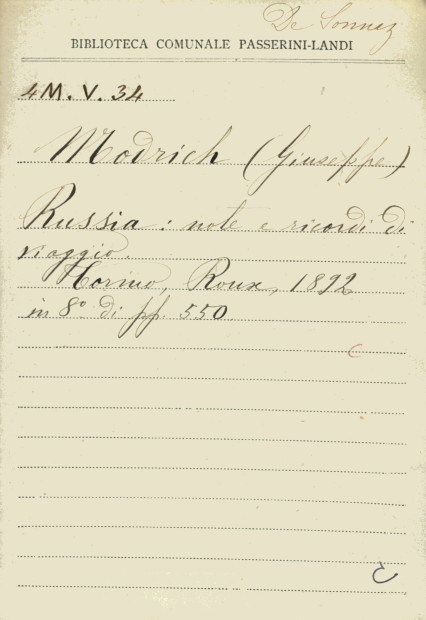 De Sonnaz
BIBLIOTECA COMUNALE PASSERINI-LANDI
4M. V. 34
Modrich (Giuseppe)
Russia : note e ricordi di
viaggio.
Torino, Roux, 1892
in 8º di pp. 550.
C